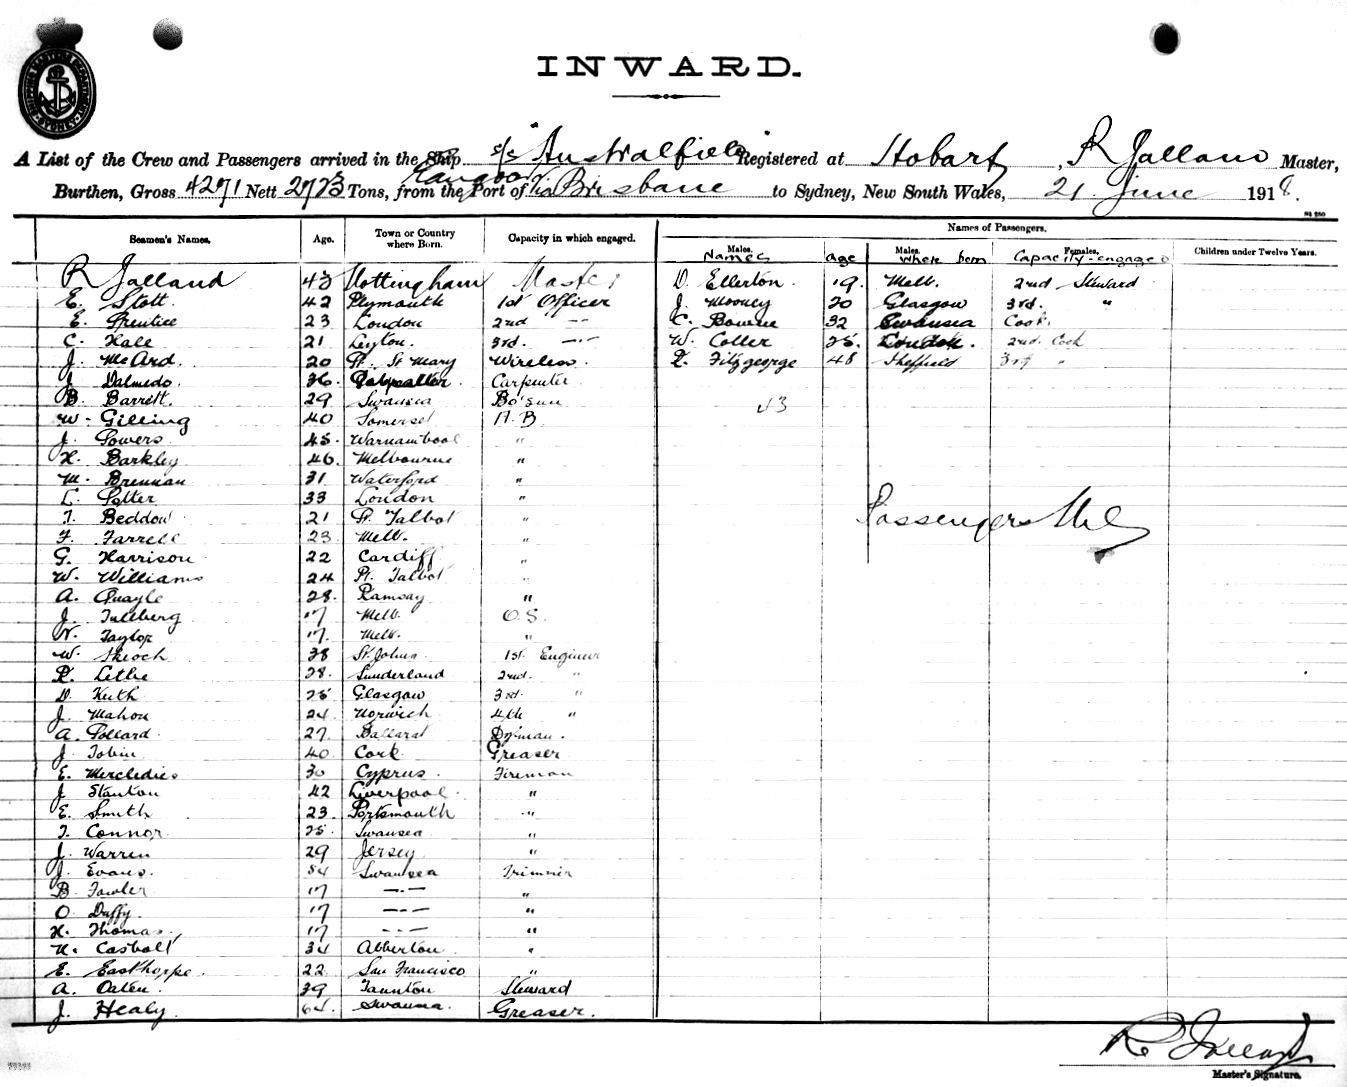 INWARD.
A List of the Crew and Passengers arrived in the Ship s/s "Australfield" Registered at Hobart, R Jalland Master,
Burthen, Gross 4271 Nett 2773 Tons, from the Port of Rangoon via Brisbane to Sydney, New South Wales, 21 June 1918.
Seamen's Names. Age. Town or Country where Born. Capacity in which engaged. Names of Passengers.
Males. Names age Males. Where born Females. Capacity engaged Children under Twelve Years.
R Jalland 43 Nottingham Master D. Ellerton 19. Melb. 2nd Steward
E. Stott. 42 Plymouth 1st Officer J. Mooney 20 Glasgow 3rd. "
E. Prentice 23 London 2nd —·— C. Bourne 32 Swansea Cook.
C. Hale 21 Leyton. 3rd. —·— W. Coller 25. London. 2nd Cook
J. McArd. 20 Pt. St Mary Wireless. Fitzgeorge 48 Sheffield 3rd "
J Dalmedo. 36. Carpenter
B. Barrett. 29 Swansea Bo'sun 43
W. Gilling 40 Somerset A.B
J. Powers 45. Warnambool "
H. Barkley 46. Melbourne "
M. Brennan 31 Waterford "
L. Potter 33 London "
T. Beddow 21 Pt. Talbot " Passengers Nil
F. Farrell 23 Melb. "
G. Harrison 22 Cardiff "
W. Williams 24 Pt. Talbot "
A. Quayle 28. Ramsay "
J. Tulleberg 17 Melb. O.S.
N. Taylor 17. Melb. "
W. Skeoch 38 St. Johns 1st. Engineer
R. Lethe 28. Sunderland 2nd. "
D. Keith 25 Glasgow 3rd. "
J. Mahon 24 Norwich 4th "
A. Pollard. 27. Ballarat D'man.
J. Tobin 40. Cork Greaser
E. Mercledies 30 Cyprus. Fireman
J Stanton 42 Liverpool. "
E. Smith 23. Portsmouth "
T. Connor 25. Swansea "
J. Warren 29 Jersey "
J. Evans. 54 Swansea Trimmer
B. Fowler 17 —·— "
O. Duffy. 17 —·— "
H. Thomas. 17 —·— "
H. Casbolt 34 Abberton "
E. Easthorpe. 22 San Francisco "
A. Oaten. 39 Taunton Steward
J. Healy. 64. Swansea. Greaser.
R. Jalland
Master's Signature.